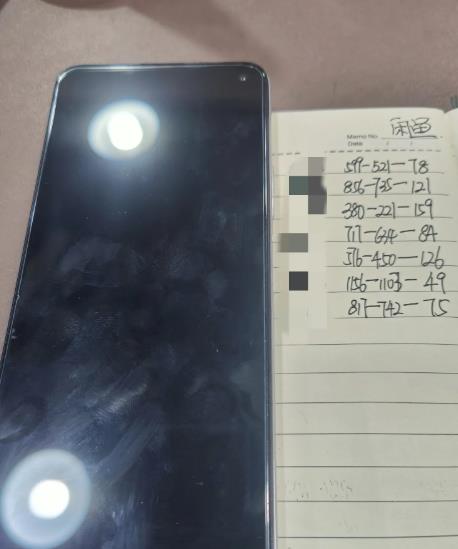 Memo No. 闲鱼
Date / /
599-521-78
856-735-121
380-221-159
717-634-84
576-450-126
1156-1107-49
817-742-75